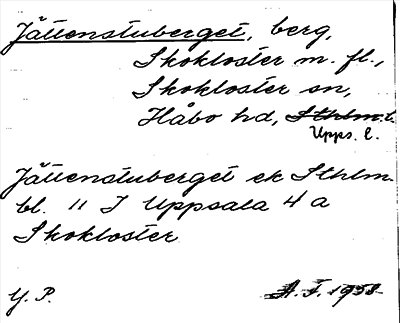 Jättenstuberget, berg,
Skokloster m. fl.,
Skokloster sn,
Håbo hd, Sthlm. l.
Upps. l.
Jättenstuberget ek Sthlm
bl. 11 I Uppsala 4 a
Skokloster
Y. P. A. F. 1958